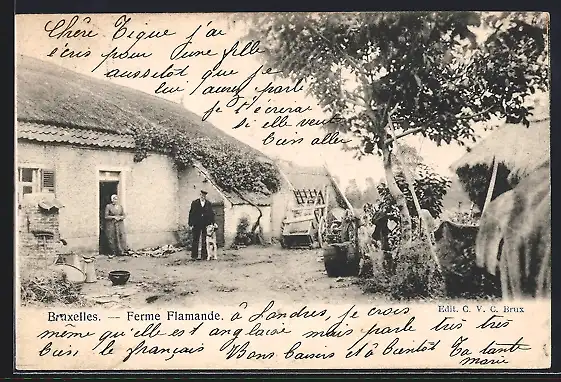 Chère Tigue j'ai
écris pour une fille
aussitôt que je
leur aurai parlé
je t'écrirai
si elle veut
bien aller
Bruxelles. — Ferme Flamande.
Edit. C. V. C. Brux
à Londres, je crois
même qu'elle est anglaise mais parle très très
bien le français Bons baisers et à bientôt Ta tante
marie